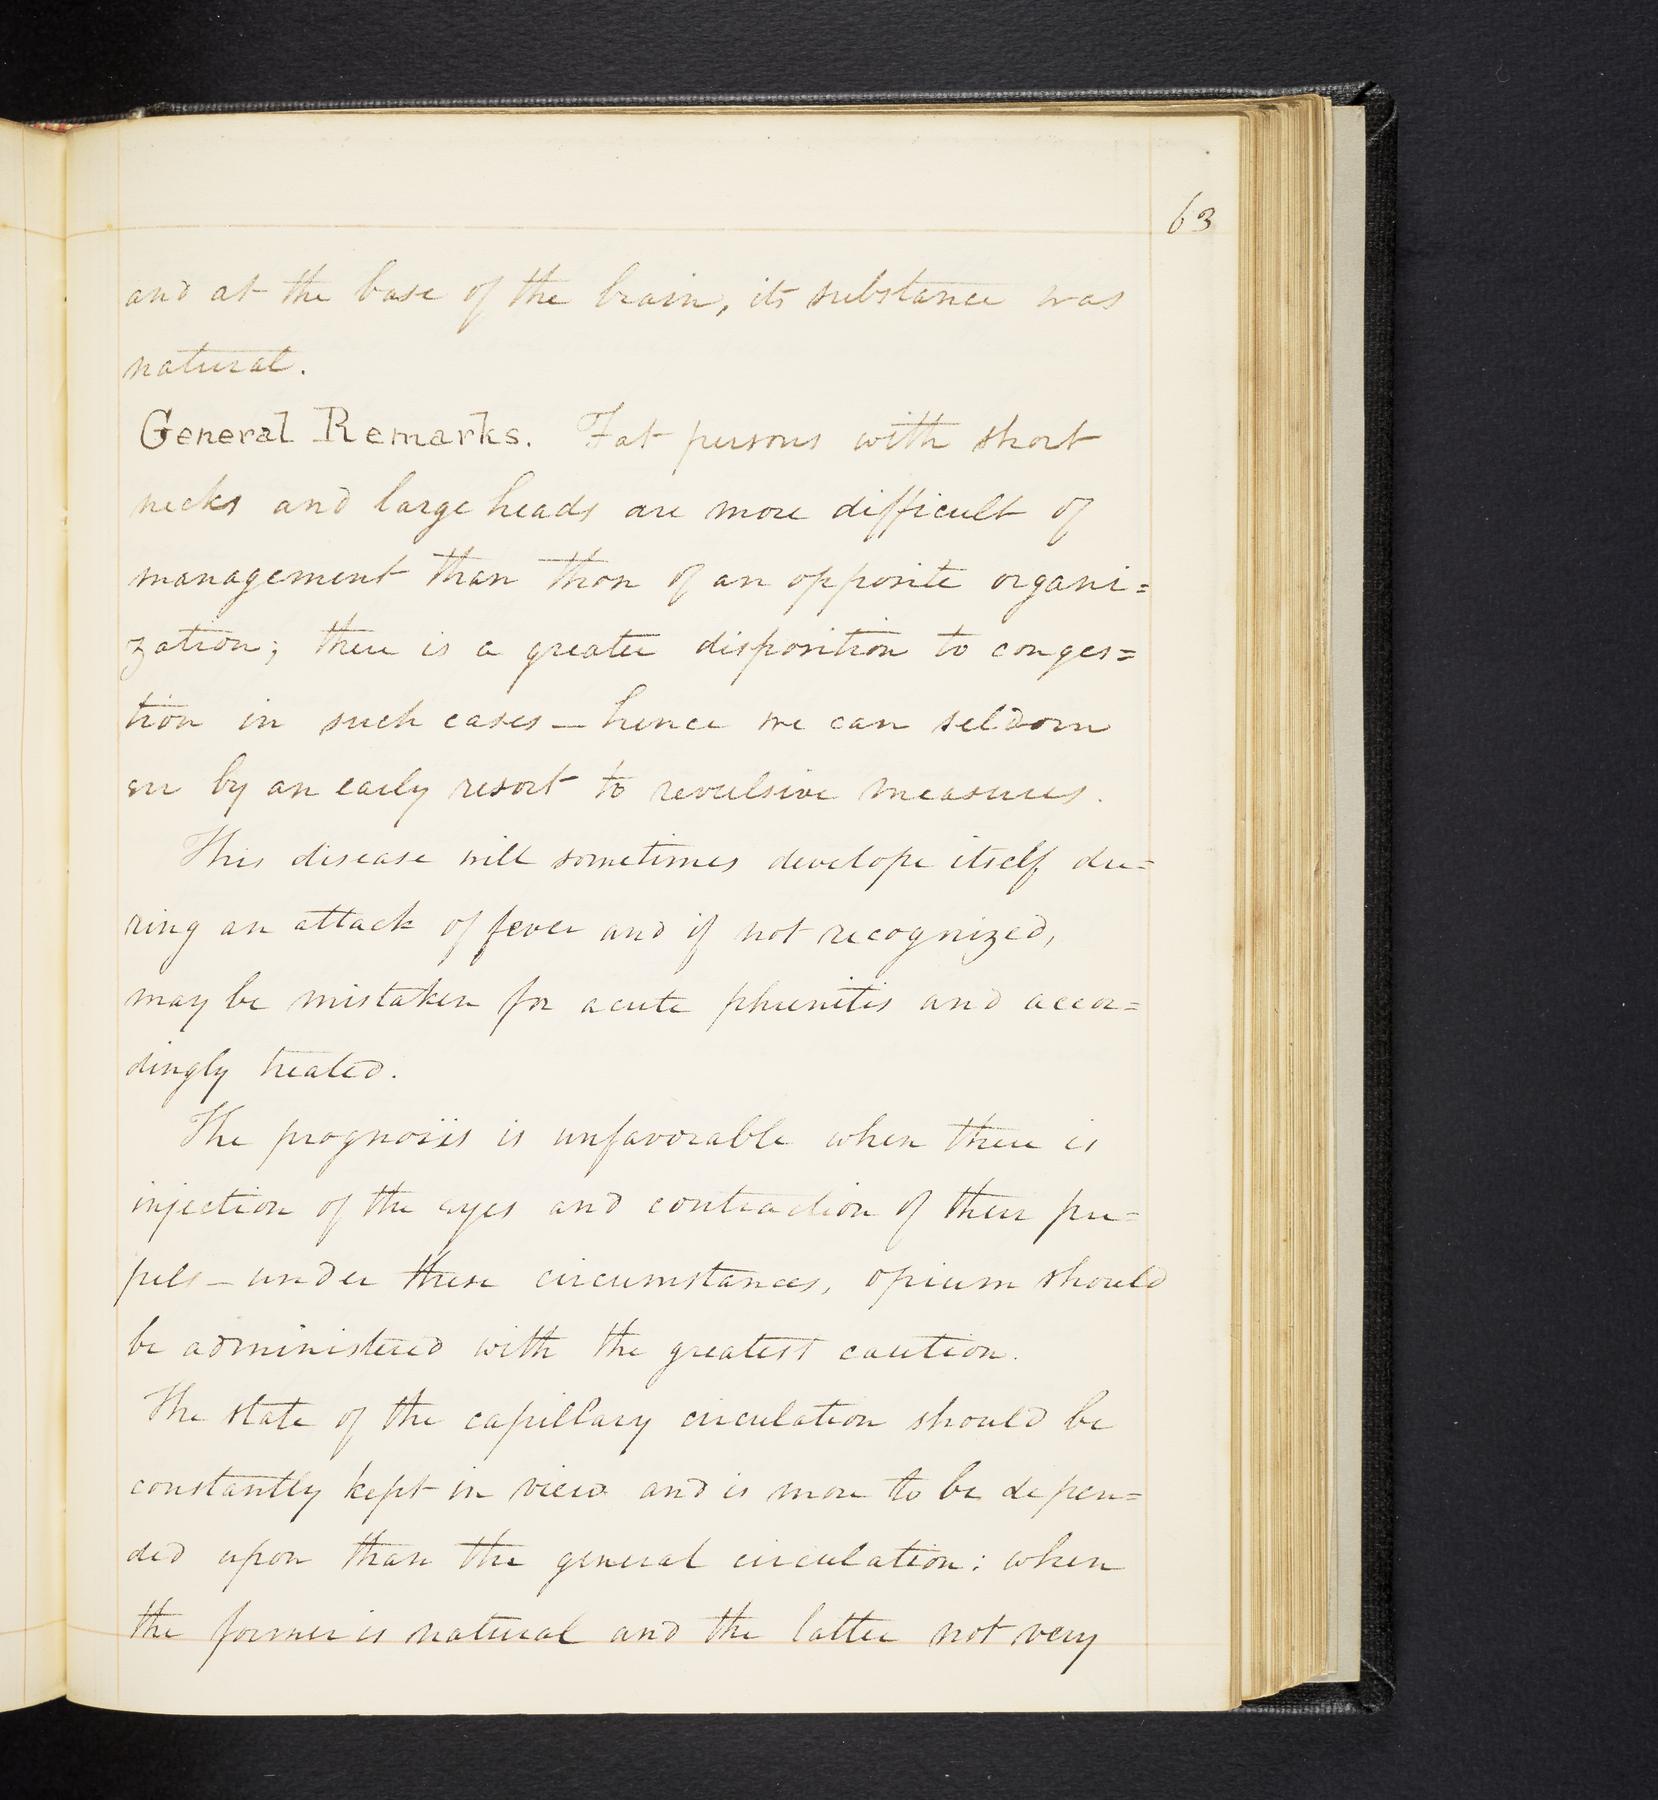 63
and at the base of the brain, its substance was
natural.
General Remarks. Fat persons with short
necks and large heads are more difficult of
management than thon of an opposite organi=
zation; there is a greater disposition to conges=
tion in such cases – hence we can seldom
err by an early resort to revulsive measures.
This disease will sometimes develope itself du=
ring an attack of fever and if not recognized,
may be mistaken for acute phrenitis and accor=
dingly treated.
The prognosis is unfavorable when there is
injection of the eyes and contraction of their pu=
pils – under these circumstances, opium should
be administered with the greatest caution.
The state of the capillary circulation should be
constantly kept in view and is more to be depen=
ded upon than the general circulation: when
the former is natural and the latter not very